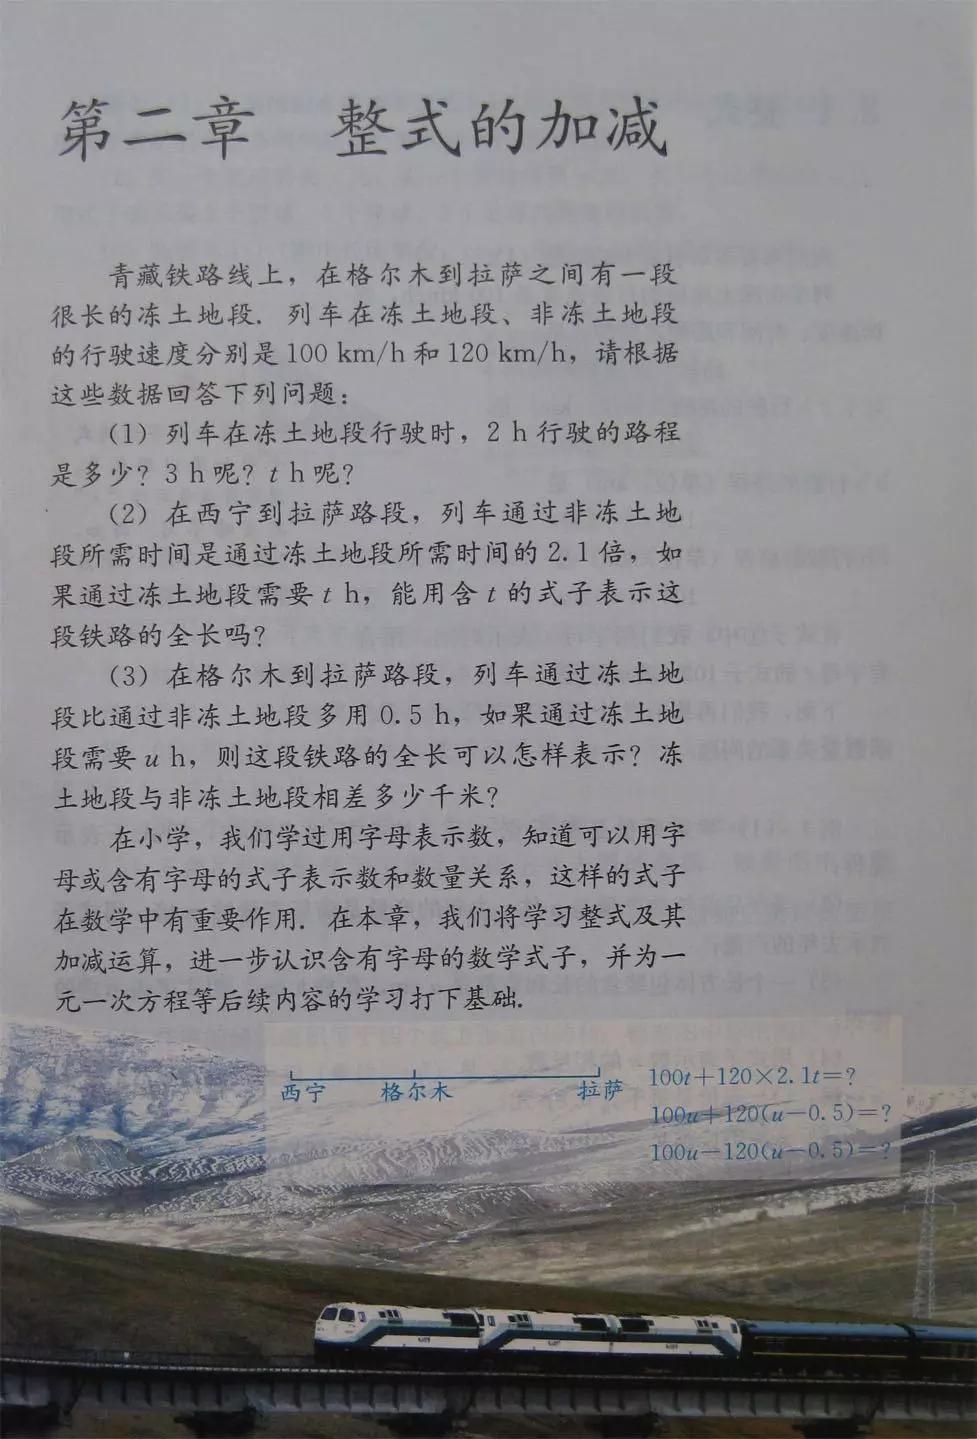 第二章 整式的加减
青藏铁路线上，在格尔木到拉萨之间有一段
很长的冻土地段．列车在冻土地段、非冻土地段
的行驶速度分别是 100 km/h 和 120 km/h，请根据
这些数据回答下列问题：
（1）列车在冻土地段行驶时，2 h 行驶的路程
是多少？3 h 呢？t h 呢？
（2）在西宁到拉萨路段，列车通过非冻土地
段所需时间是通过冻土地段所需时间的 2.1 倍，如
果通过冻土地段需要 t h，能用含 t 的式子表示这
段铁路的全长吗？
（3）在格尔木到拉萨路段，列车通过冻土地
段比通过非冻土地段多用 0.5 h，如果通过冻土地
段需要 u h，则这段铁路的全长可以怎样表示？冻
土地段与非冻土地段相差多少千米？
在小学，我们学过用字母表示数，知道可以用字
母或含有字母的式子表示数和数量关系，这样的式子
在数学中有重要作用．在本章，我们将学习整式及其
加减运算，进一步认识含有字母的数学式子，并为一
元一次方程等后续内容的学习打下基础．
西宁 格尔木 拉萨
100t+120×2.1t=?
100u+120(u−0.5)=?
100u−120(u−0.5)=?